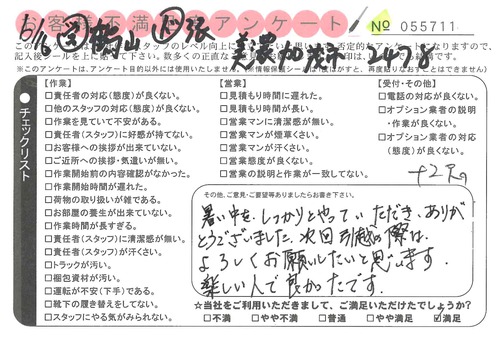 お客様不満足アンケート
№ 055711
6/16 鶴山 張
美濃加茂 2478
チェックリスト
【作業】
□責任者の対応(態度)が良くない。
□他のスタッフの対応(態度)が良くない。
□作業を見ていて不安がある。
□責任者(スタッフ)に好感が持てない。
□お客様への挨拶が出来ていない。
□ご近所への挨拶・気遣いが無い。
□作業開始前の内容確認がなかった。
□作業開始時間が遅れた。
□荷物の取り扱いが雑である。
□お部屋の養生が出来ていない。
□作業時間が長すぎる。
□責任者(スタッフ)に清潔感が無い。
□責任者(スタッフ)が汗くさい。
□トラックが汚い。
□梱包資材が汚い。
□運転が不安(下手)である。
□靴下の履き替えをしてない。
□スタッフにやる気がみられない。
【営業】
□見積もり時間に遅れた。
□見積もり時間が長い。
□営業マンに清潔感が無い。
□営業マンが煙草くさい。
□営業マンが汗くさい。
□営業態度が良くない。
□営業の説明と作業が一致してない。
【受付・その他】
□電話の対応が良くない。
□オプション業者の説明
・作業が良くない。
□オプション業者の対応
(態度)が良くない。
その他、ご意見・ご要望等ありましたらお書き下さい。
暑い中を、しっかりとやっていただき、ありが
とうございました。次回引越の際は、
よろしくお願いしたいと思います。
楽しい人で良かったです。
☆当会社をご利用いただきまして、ご満足いただけたでしょうか?
□不満 □やや不満 □普通 □やや満足 ☑満足